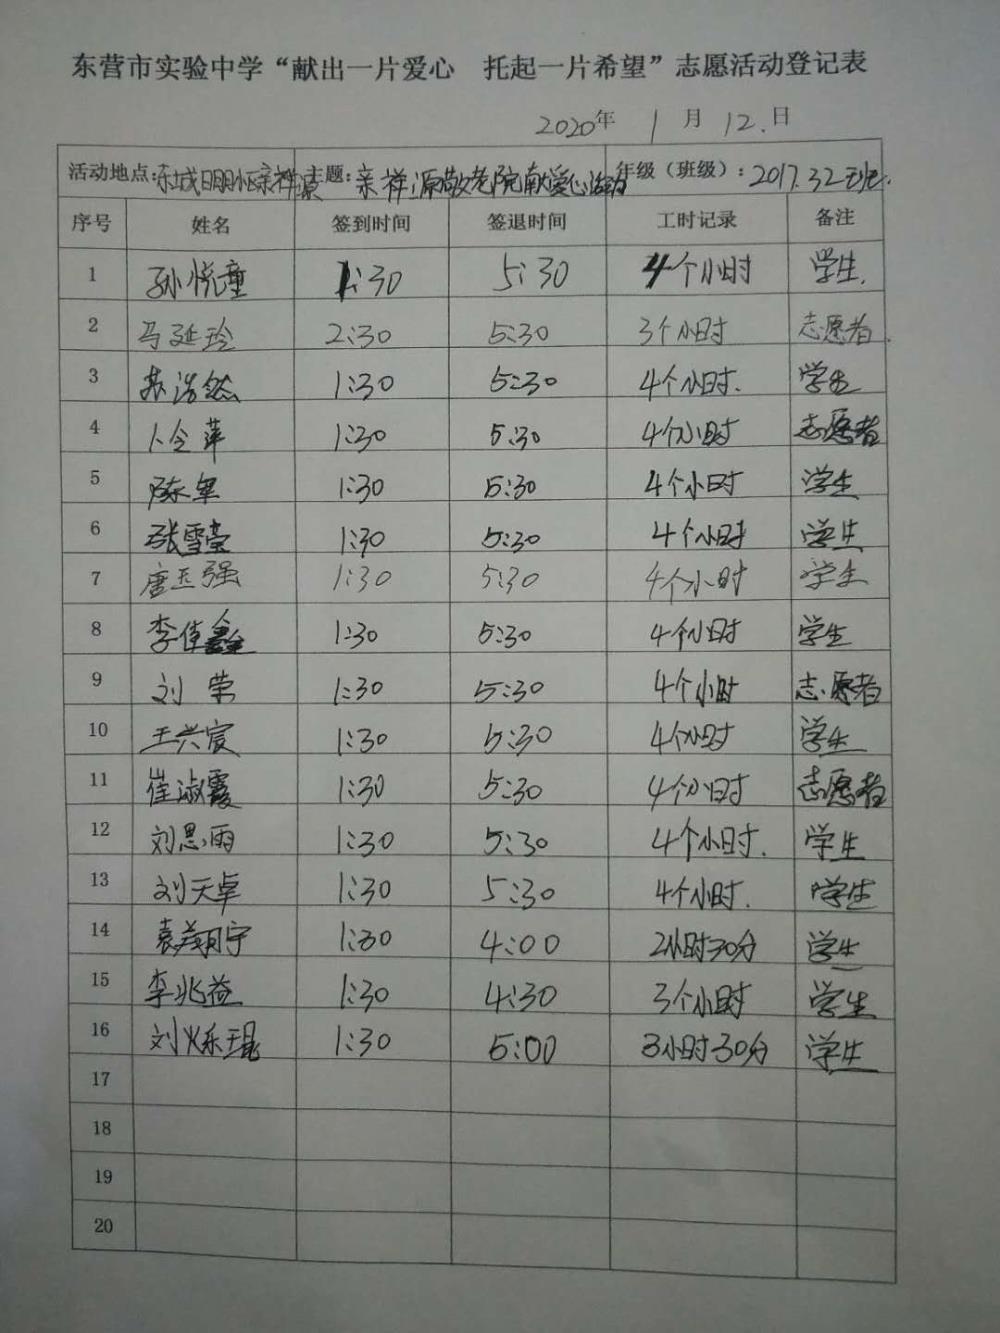 东营市实验中学“献出一片爱心 托起一片希望”志愿活动登记表
2020年 1 月 12.日
活动地点:东城明月小区亲祥源 主题:亲祥源敬老院献爱心活动 年级（班级）:2017.32班
序号 姓名 签到时间 签退时间 工时记录 备注
1 孙悦童 1:30 5:30 4个小时 学生.
2 马延玲 2:30 5:30 3个小时 志愿者.
3 苏浩然 1:30 5:30 4个小时. 学生
4 卜令萍 1:30 5:30 4个小时 志愿者
5 陈军 1:30 5:30 4个小时 学生
6 张雪莹 1:30 5:30 4个小时 学生
7 唐玉强 1:30 5:30 4个小时 学生
8 李佳鑫 1:30 5:30 4个小时 学生
9 刘荣 1:30 5:30 4个小时 志愿者
10 王兴宸 1:30 5:30 4个小时 学生
11 崔淑霞 1:30 5:30 4个小时 志愿者
12 刘思雨 1:30 5:30 4个小时. 学生
13 刘天卓 1:30 5:30 4个小时. 学生
14 袁翔宇 1:30 4:00 2小时30分 学生
15 李兆益 1:30 4:30 3个小时 学生
16 刘烁琨 1:30 5:00 3小时30分 学生
17
18
19
20